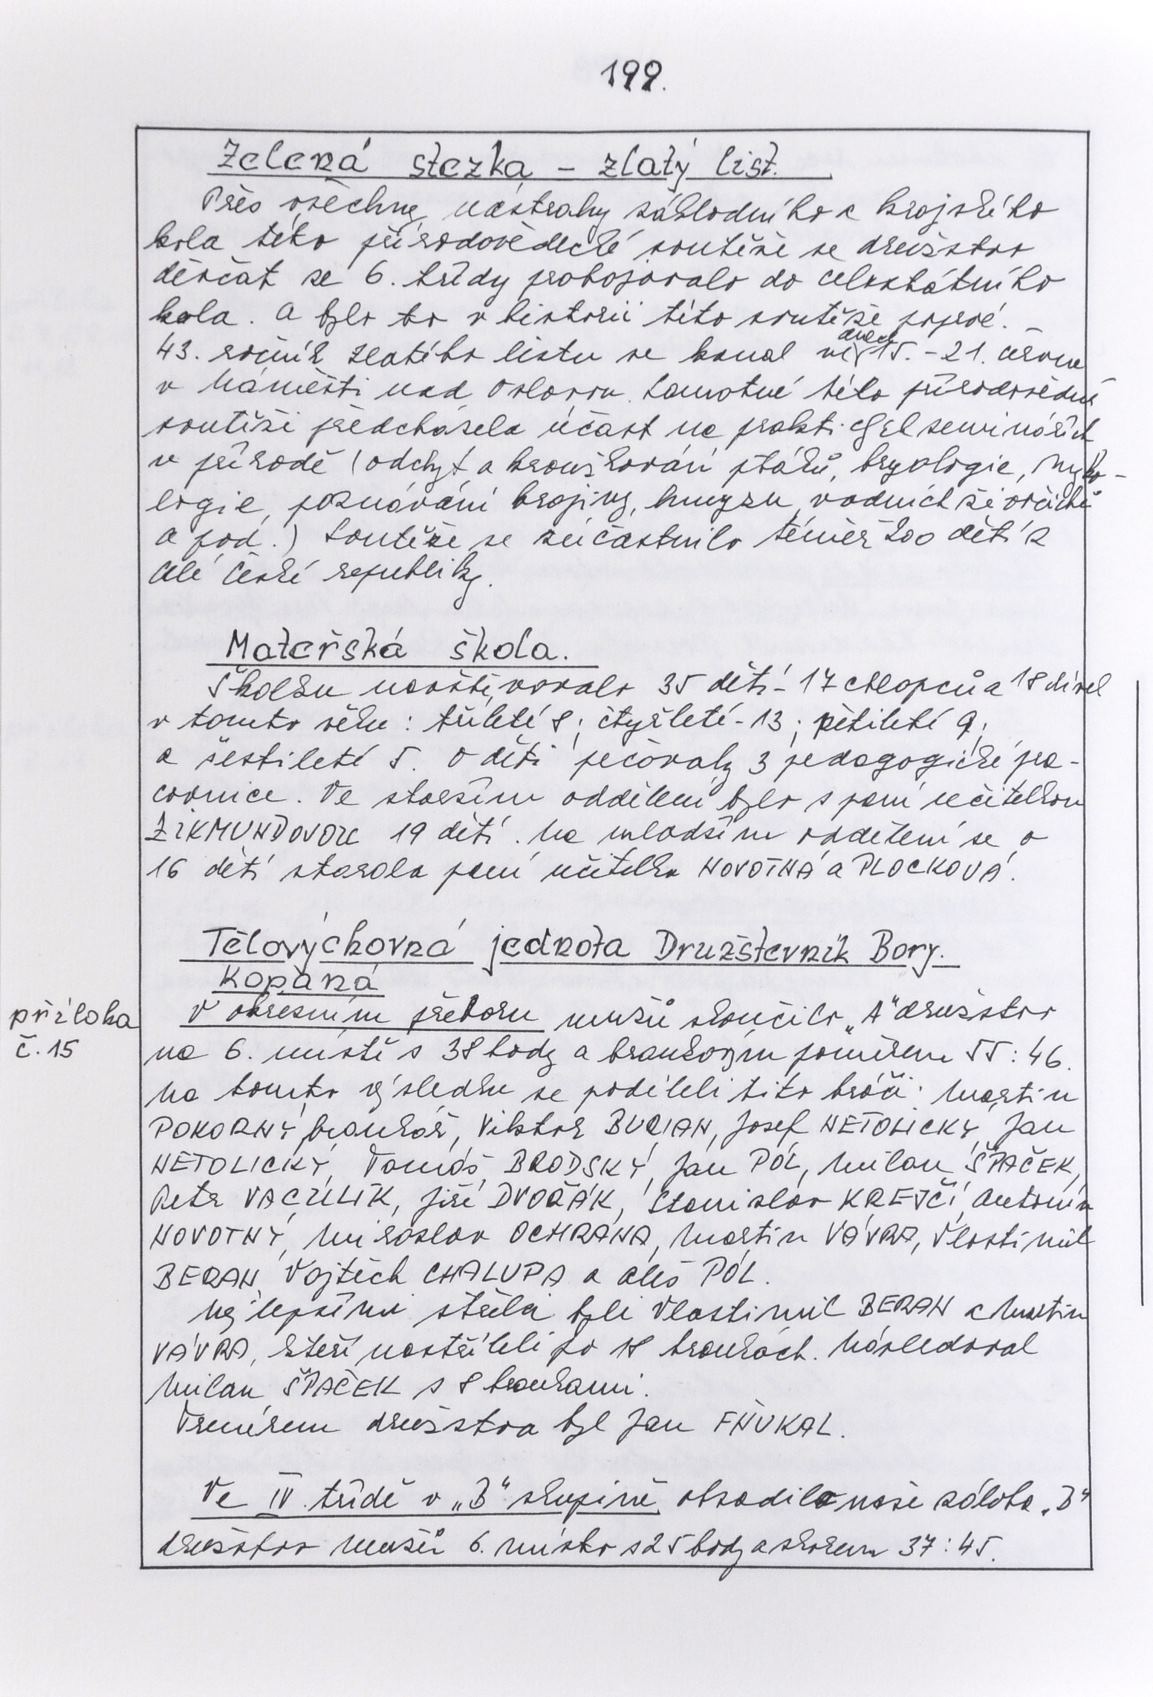 199.
Zelená stezka – zlatý list.
Přes všechny nástrahy základního a krajského
kola této přírodovědecké soutěže se družstvo
děvčat ze 6. třídy probojovalo do celostátního
kola. A bylo to v historii této soutěže poprvé.
43. ročník Zlatého listu se konal ve dnech 15. – 21. června
v Náměšti nad Oslavou. Samotné této přírodovědné
soutěži předcházela účast na seminářích
v přírodě (odchyt a kroužkování ptáků, bryologie, myko-
logie, poznávání krajiny, hmyzu, vodních živočichů
a pod.) Soutěže se zúčastnilo téměř 200 dětí z
celé České republiky.
Mateřská škola.
Školku navštěvovalo 35 dětí – 17 chlopců a 18 dívek
v tomto věku: tříleté 8; čtyřleté – 13; pětileté 9;
a šestileté 5. O děti pečovaly 3 pedagogické pra-
covnice. Ve starším oddělení bylo s paní učitelkou
ZIKMUNDOVOU 19 dětí. Na mladším oddělení se o
16 dětí starala paní učitelka NOVOTNÁ a PLOCKOVÁ.
Tělovýchovná jednota Družstevník Bory.
Kopaná
příloha
č. 15
V okresním přeboru mužů skončilo „A" družstvo
na 6. místě s 38 body a brankovým poměrem 55 : 46.
Na tomto výsledku se podíleli tito hráči: Martin
POKORNÝ, brankář, Viktor BURIAN, Josef NETOLICKÝ, Jan
NETOLICKÝ, Tomáš BRODSKÝ, Jan PÓL, Milan ŠPAČEK,
Petr VACULÍK, Jiří DVOŘÁK, Stanislav KREJČÍ, Antonín
NOVOTNÝ, Miroslav OCHRANA, Martin VÁVRA, Vlastimil
BERAN, Vojtěch CHALUPA a Aleš PÓL.
Nejlepšími střelci byli Vlastimil BERAN a Martin
VÁVRA, kteří nastříleli po 18 brankách. Následoval
Milan ŠPAČEK s 8 brankami.
Trenérem družstva byl Jan FŇUKAL.
Ve IV. třídě v „B" skupině obsadilo naše záloha „B"
družstvo mužů 6. místo s 25 body a skórem 37 : 45.